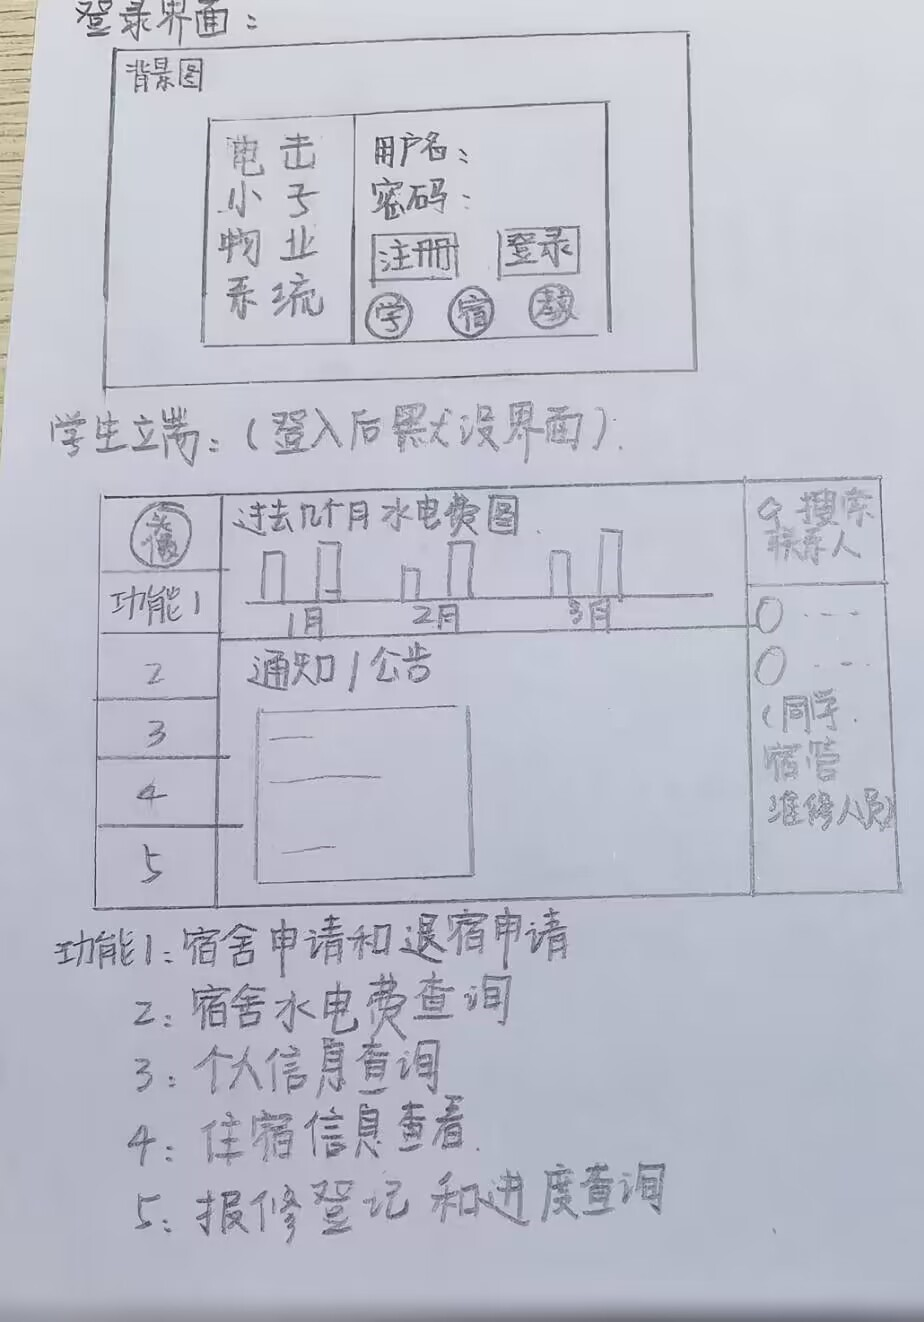 登录界面：
背景图
电击
小子
物业
系统
用户名：
密码：
注册 登录
学 宿 教
学生立端：（登入后默没界面）.
头像
功能1
2
3
4
5
过去几个月水电费图
1月 2月 3月
通知/公告
搜索
联系人
（同学.
宿管
维修人员）
功能1：宿舍申请和退宿申请
2：宿舍水电费查询
3：个人信息查询
4：住宿信息查看.
5：报修登记和进度查询